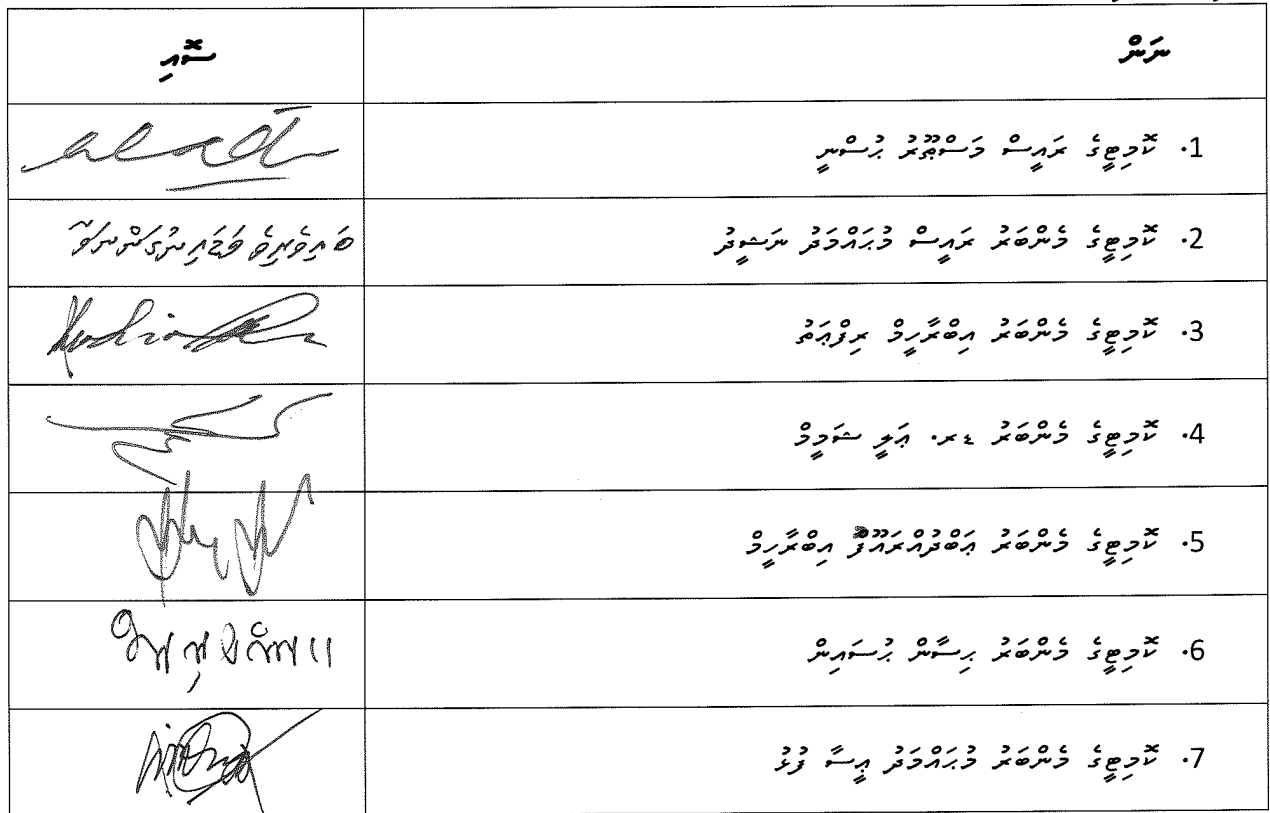 ނަން
ސޮއި
1. ކޮމިޓީގެ ރައީސް މަސްޠޫރު ޙުސްނީ
2. ކޮމިޓީގެ މެންބަރު ރައީސް މުޙައްމަދު ނަޝީދު
ބައިވެރިވެ ވަޑައިނުގަންނަވާ
3. ކޮމިޓީގެ މެންބަރު އިބްރާހީމް ރިފްޢަތު
4. ކޮމިޓީގެ މެންބަރު ޑރ. ޢަލީ ޝަމީމް
5. ކޮމިޓީގެ މެންބަރު ޢަބްދުއްރައޫފް އިބްރާހީމް
6. ކޮމިޓީގެ މެންބަރު ޙިސާން ޙުސައިން
7. ކޮމިޓީގެ މެންބަރު މުޙައްމަދު ޢީސާ ފުޅު